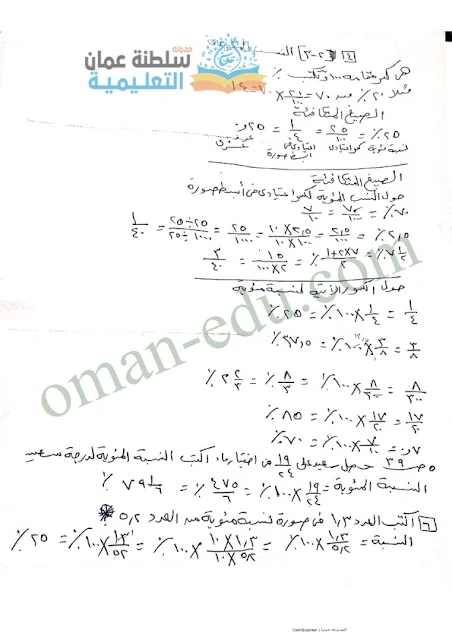 مدونة
سلطنة عمان
التعليمية
[٤] (٢-٣) النسب
هي كسر مقامه ١٠٠ وتكتب ٪
مثلا ٢٠٪ من ٧٠ = ٢٠/١٠٠ × ٧٠ = ١٤
الصيغ المتكافئة
٢٥٪ = ٢٥/١٠٠ = ١/٤ = ٠,٢٥
نسبة مئوية كسر اعتيادي اعتيادي في عشري
أبسط صورة
الصيغ المتكافئة
حول النسب المئوية لكسر اعتيادي في أبسط صورة
٧٠٪ = ٧٠/١٠٠ = ٧/١٠
٢,٥٪ = ٢,٥/١٠٠ = ٢,٥×١٠/١٠٠×١٠ = ٢٥/١٠٠٠ = ٢٥÷٢٥/١٠٠٠÷٢٥ = ١/٤٠
٧ ١/٢٪ = ٧×٢+١/٢٪ = ١٥/٢×١٠٠ = ٣/٤٠
حول الكسور الآتية لنسبة مئوية
١/٤ = ١/٤ × ١٠٠٪ = ٢٥٪
٣/٨ = ٣/٨ × ١٠٠٪ = ٣٧,٥٪
٨/٣٠٠ = ٨/٣٠٠ × ١٠٠٪ = ٨/٣٪ = ٢ ٢/٣٪
١٧/٢٠ = ١٧/٢٠ × ١٠٠٪ = ٨٥٪
٠,٧ = ٧/١٠ × ١٠٠٪ = ٧٠٪
٥ ص ٣٩ حصل سعيد على ١٩/٢٤ في اختبار ما، اكتب النسبة المئوية لدرجة سعيد
النسبة المئوية = ١٩/٢٤ × ١٠٠٪ = ٤٧٥/٦٪ = ٧٩ ١/٦٪
[٦] اكتب العدد ١,٣ في صورة نسبة مئوية من العدد ٥,٢
النسبة = ١,٣/٥,٢ × ١٠٠٪ = ١,٣×١٠/٥,٢×١٠ × ١٠٠٪ = ١٣/٥٢ × ١٠٠٪ = ٢٥٪
oman-edu.com
CamScanner